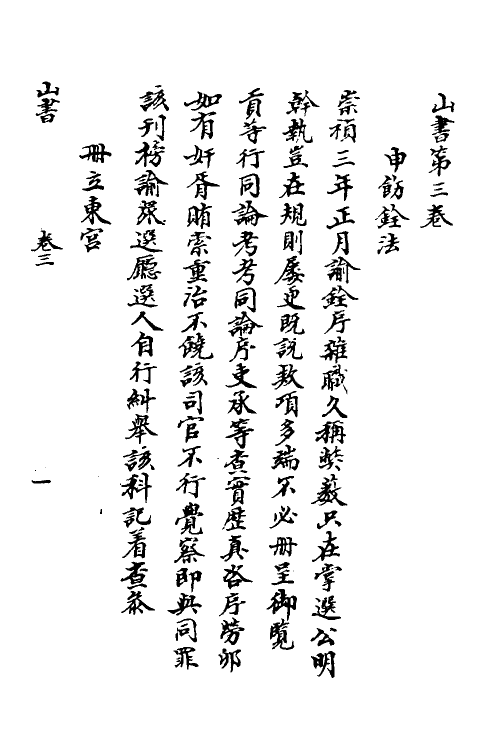 山書第三卷
申飭銓法
崇禎三年正月諭銓序雜職久稱弊藪只在掌選公明
幹執豈在規則屡更既説欵項多端不必冊呈御覧
貢等行同論考考同論序吏承等查實歴真咨序勞卯
如有奸胥賄索重治不饒該司官不行覺察即與同罪
該刊榜諭聽選廳選人自行糾舉該科記着查叅
冊立東宮
山書
卷三
一